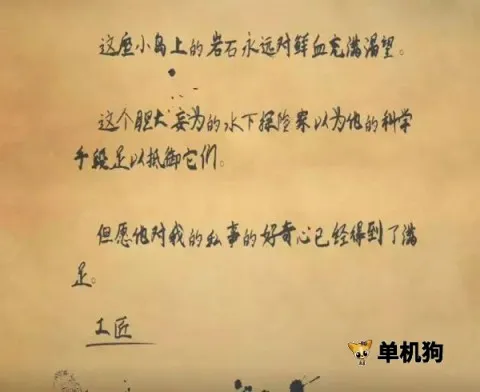 这座小岛上的岩石永远对鲜血充满渴望。
这个胆大妄为的水下探险家以为他的科学
手段足以抵御它们。
但愿他对我的私事的好奇心已经得到了满
足。
工匠
单机狗